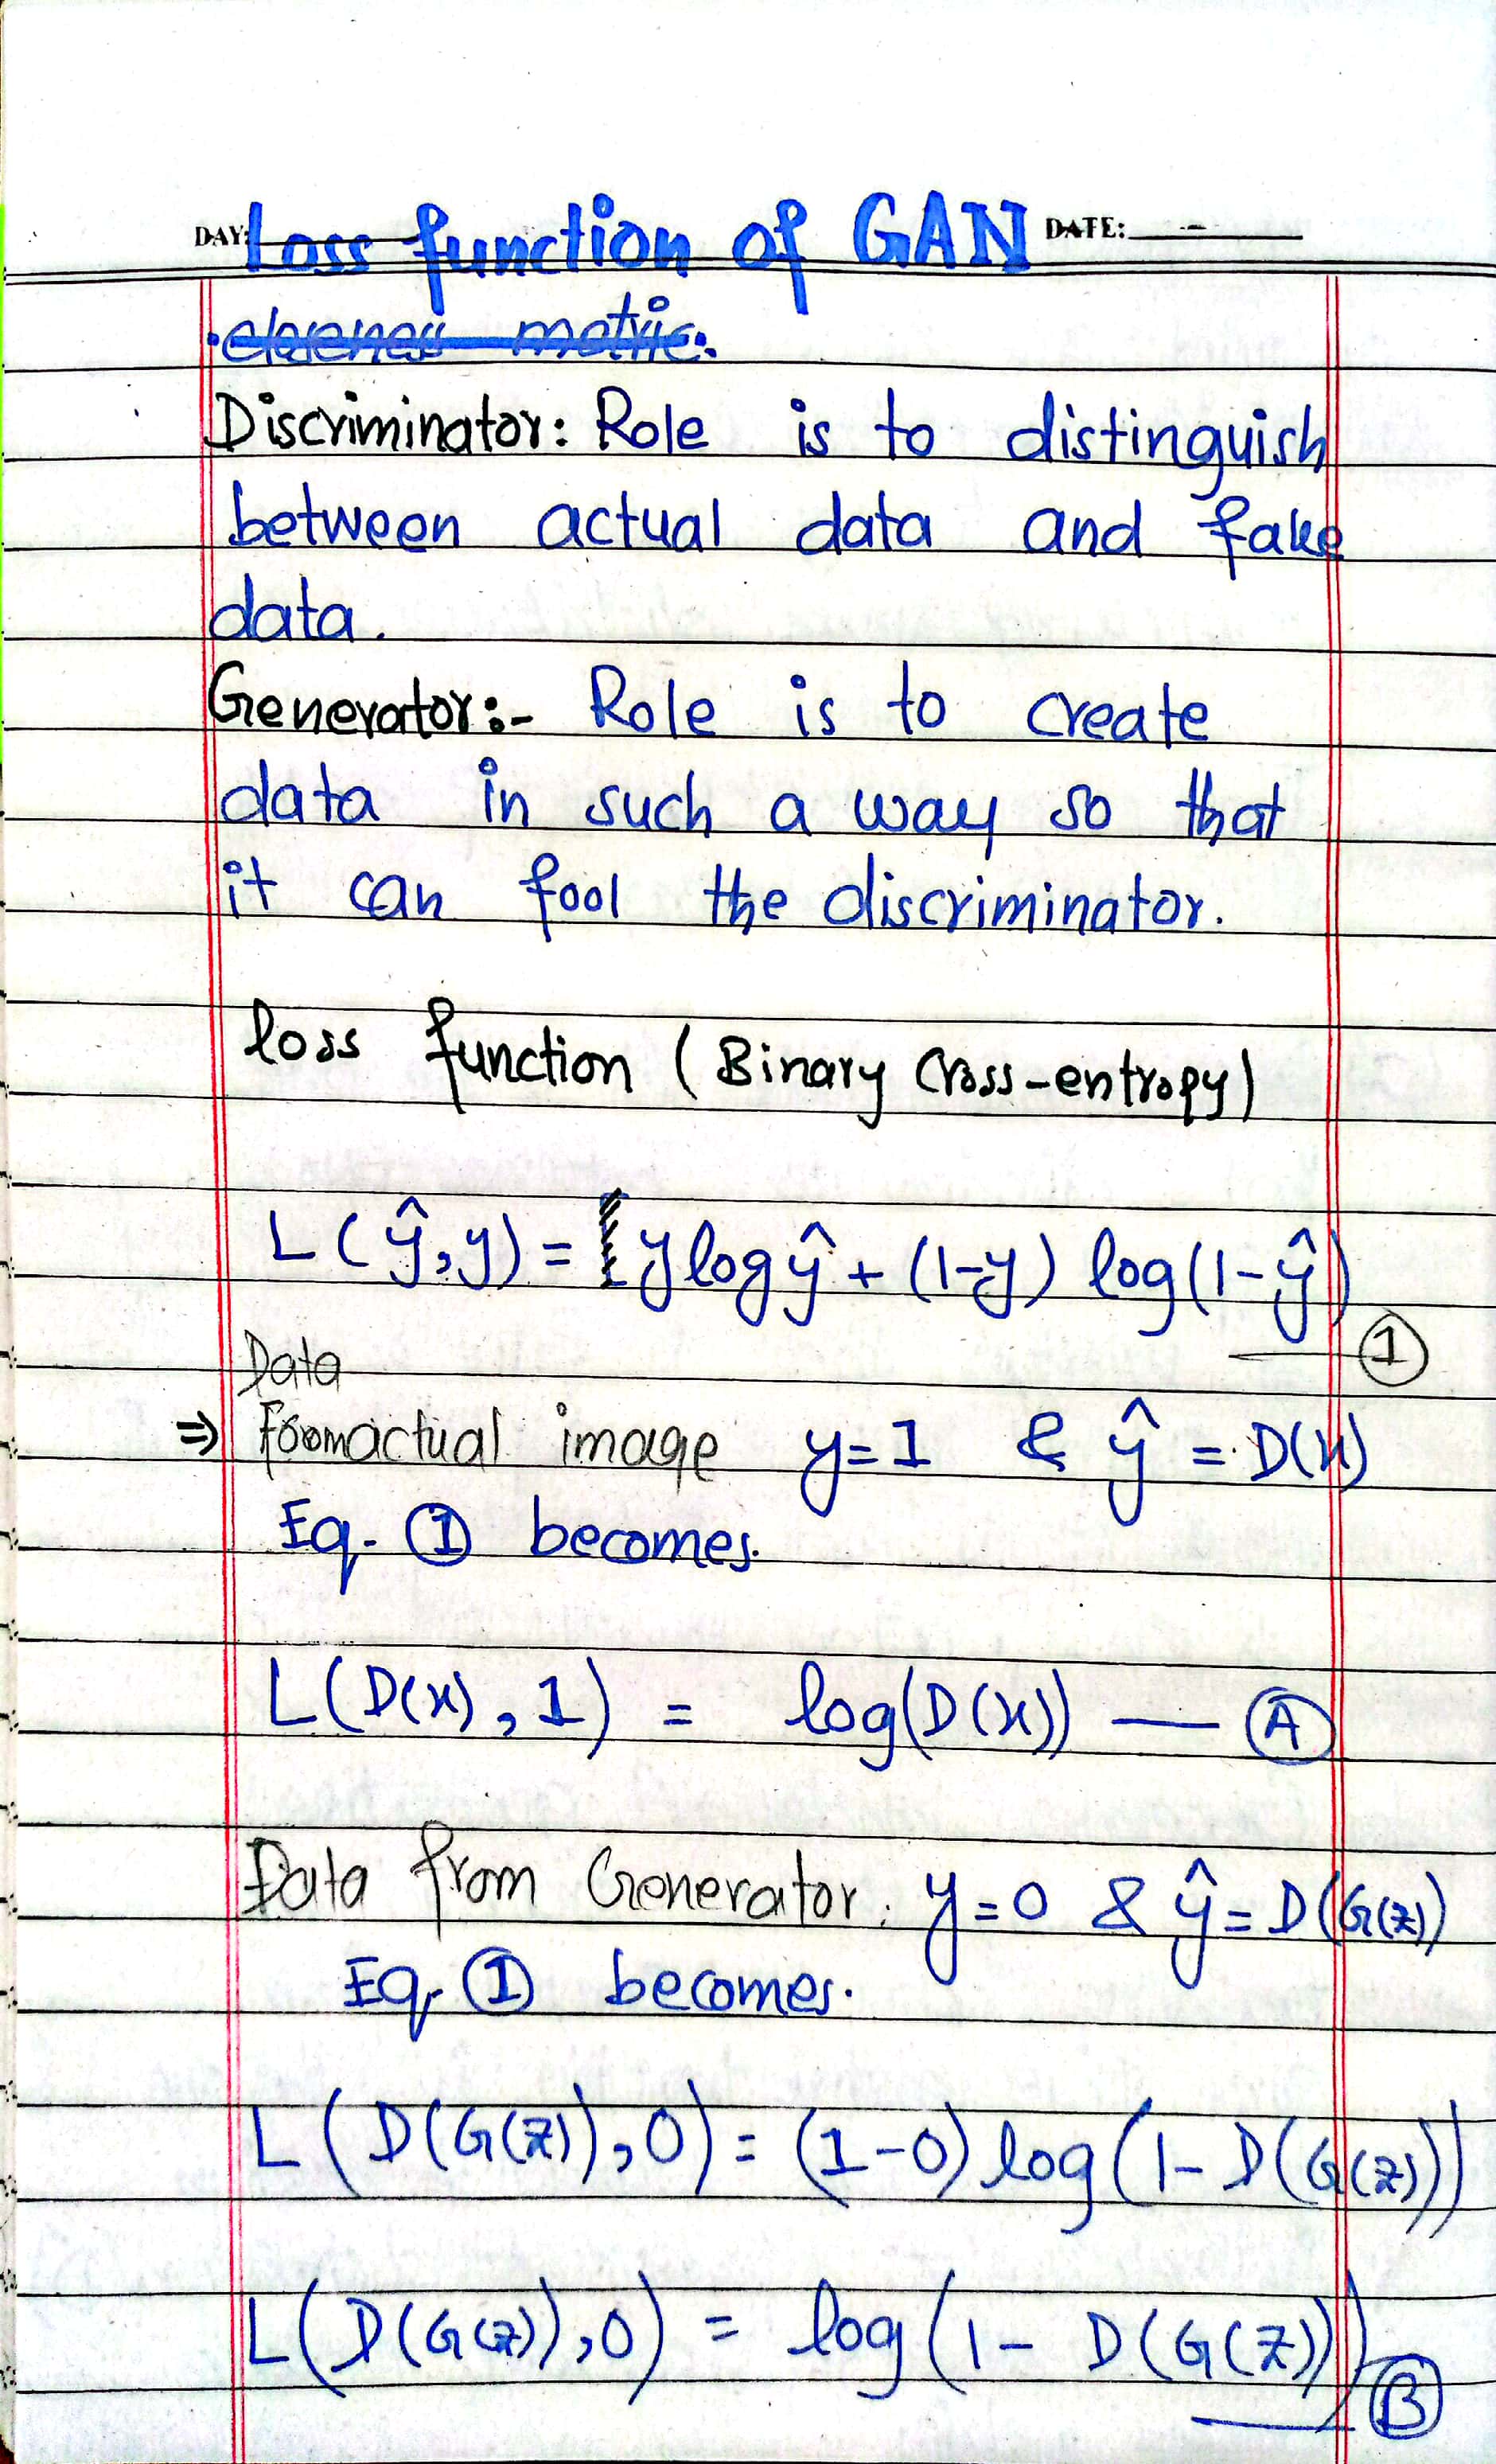 DAY: Loss function of GAN DATE:
closeness metric.
Discriminator: Role is to distinguish
between actual data and fake
data.
Generator:- Role is to create
data in such a way so that
it can fool the discriminator.
loss function (Binary Cross-entropy)
L(ŷ,y) = [ylogŷ + (1-y) log(1-ŷ)
1
Data
⇒ From actual image y=1 & ŷ = D(x)
Eq. 1 becomes.
L(D(x), 1) = log(D(x)) — A
Data from Generator. y=0 & ŷ = D(G(z))
Eq. 1 becomes.
L(D(G(z)),0) = (1-0) log(1-D(G(z)))
L(D(G(z)),0) = log(1- D(G(z)))
B